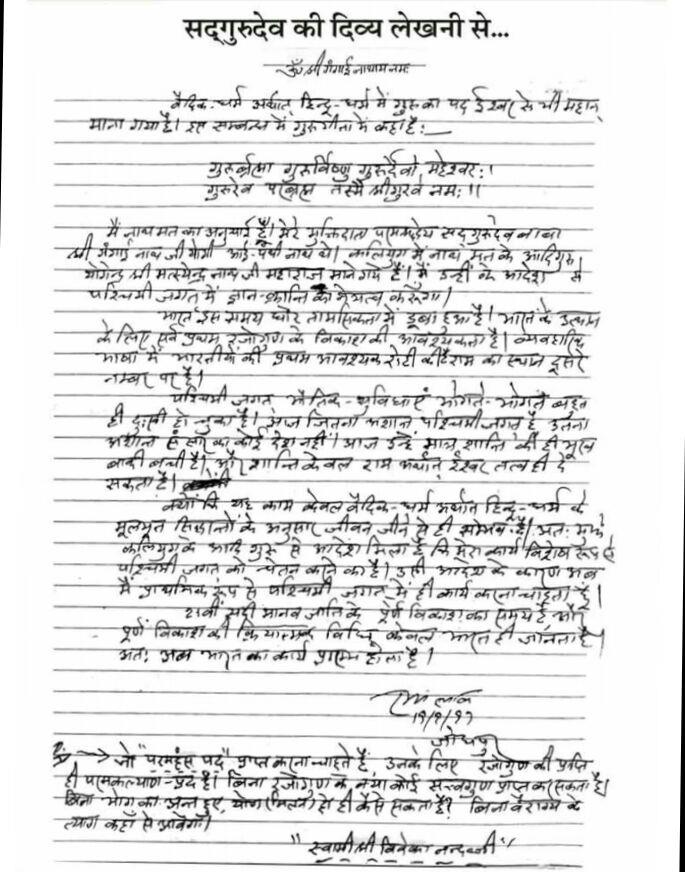 सद्‌गुरुदेव की दिव्य लेखनी से...
ॐ श्री गंगाई नाथाय नमः
वैदिक-धर्म अर्थात् हिन्दू-धर्म में गुरु का पद ईश्वर से भी महान्
माना गया है। इस सम्बन्ध में गुरुगीता में कहा है:
गुरुर्ब्रह्मा गुरुर्विष्णु गुरुर्देवो महेश्वरः।
गुरुरेव परब्रह्म तस्मै श्रीगुरवे नमः॥
मैं नाथमत का अनुयाई हूँ। मेरे मुक्तिदाता परमश्रद्धेय सद्‌गुरुदेव बाबा
श्री गंगाई नाथ जी योगी आई-पंथी नाथ थे। कलियुग में नाथ मत के आदिगुरु
योगेन्द्र श्री मत्स्येन्द्र नाथ जी महाराज माने गये हैं। मैं उन्हीं के आदेश से
पश्चिमी जगत में ज्ञान-क्रान्ति का नेतृत्व करूंगा।
भारत इस समय घोर तामसिकता में डूबा हुआ है। भारत के उत्थान
के लिए सर्व प्रथम रजोगुण के विकाश की आवश्यकता है। व्यवहारिक
भाषा में भारतीयों की प्रथम आवश्यक रोटी की है राम का स्थान दूसरे
नम्बर पर है।
पश्चिमी जगत भौतिक-सुविधाएं भोगते-भोगते बहुत
ही दुःखी हो चुका है। आज जितना अशान्त पश्चिमी जगत है उतना
अशान्त संसार का कोई देश नहीं। आज उन्हें मात्र शान्ति की ही भूख
बाकी बची है। और शान्ति केवल राम अर्थात् ईश्वर तत्व ही दे
सकता है।
क्यों कि यह काम केवल वैदिक-धर्म अर्थात् हिन्दू-धर्म के
मूलभूत सिद्धान्तों के अनुसार जीवन जीने से ही सम्भव है। अतः मुझे
कलियुग के आदि गुरु से आदेश मिला है कि मेरा कार्य विशेष रूप से
पश्चिमी जगत को चेतन करने का है। उसी आदेश के कारण अब
मैं प्राथमिक रूप से पश्चिमी जगत में ही कार्य करना चाहता हूँ।
21वीं सदी मानव जाति के पूर्ण विकाश का समय है, और
पूर्ण विकाश की क्रियात्मक विधि केवल भारत ही जानता है।
अतः अब भारत का कार्य प्रारम्भ होता है।
19/9/97
जोधपुर
जो "परमहंस पद" प्राप्त करना चाहते हैं, उनके लिए रजोगुण की प्राप्ति
ही परमकल्याण-प्रद है। बिना रजोगुण के क्या कोई सत्त्वगुण प्राप्त कर सकता है।
बिना भोग का अन्त हुए, योग (मिलन) हो ही कैसे सकता है? बिना वैराग्य के
त्याग कहाँ से आवेगा।
"स्वामी श्री विवेकानन्द जी"